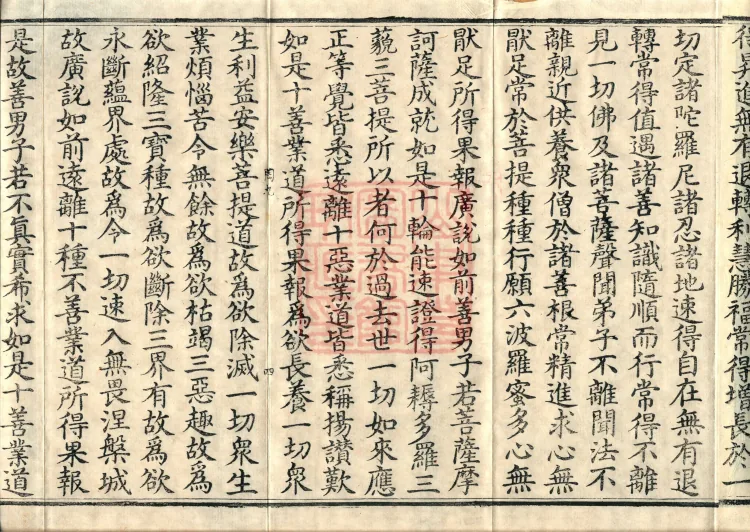 得昇進無有退轉利慧勝福常得增長於一
切定諸陀羅尼諸忍諸地速得自在無有退
轉常得值遇諸善知識隨順而行常得不離
見一切佛及諸菩薩聲聞弟子不離聞法不
離親近供養衆僧於諸善根常精進求心無
猒足常於菩提種種行願六波羅蜜多心無
猒足所得果報廣說如前善男子若菩薩摩
訶薩成就如是十輪能速證得阿耨多羅三
藐三菩提所以者何於過去世一切如來應
正等覺皆悉遠離十惡業道皆悉稱揚讚歎
如是十善業道所得果報爲欲長養一切衆
生利益安樂菩提道故爲欲除滅一切衆生
業煩惱苦令無餘故爲欲枯竭三惡趣故爲
欲紹隆三寶種故爲欲斷除三界有故爲欲
永斷蘊界處故爲令一切速入無畏涅槃城
故廣說如前遠離十種不善業道所得果報
是故善男子若不眞實希求如是十善業道